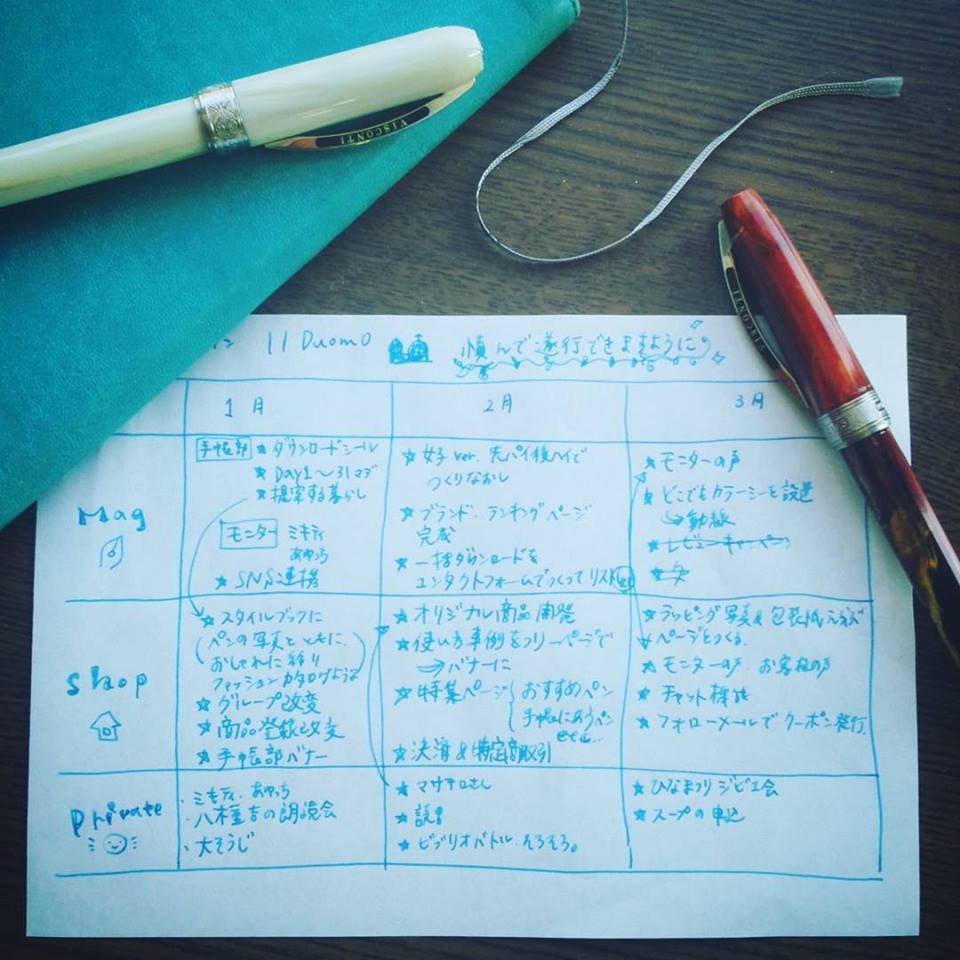 VISCONTI
VISCONTI
Il Duomo 慎んで遂行できますように
1月 2月 3月
Mag
手帳部 ★ ダウンロードシール
★ Day1〜31マデ
★ 提案する暮らし
モニター ミキティ
あゆっち
★ SNS連携
★ 女子ver. 先パイ後ハイで
つくりなおし
★ ブランド・ランキングページ
完成
★ 一括ダウンロードを
コンタクトフォームでつくってリスト
★ モニターの声
★ どこでもカラーミーを設置
→動線
★ レビューキャンペーン
Shop
★ スタイルブックに
(ペンの写真とともに、
おしゃれに
ファッションカタログのように)
★ グループ改変
★ 商品登録改変
★ 手帳部バナー
★ オリジナル商品開発
★ 使い方事例をフリーページで
→バナーに
★ 特集ページ{おすすめペン
手帳にあうペン
etc...
★ 決済&特定商取引
★ ラッピング写真&包装紙
ページをつくる
★ モニターの声・お客様の声
★ チャット機能
★ フォローメールでクーポン発行
Private
・ミキティ・あゆっち
・八木重吉の朗読会
・大そうじ
★ マサヒロさん
★ 読書
★ ビブリオバトル そろそろ。
★ ひなまつりジビエ会
★ スープの申込